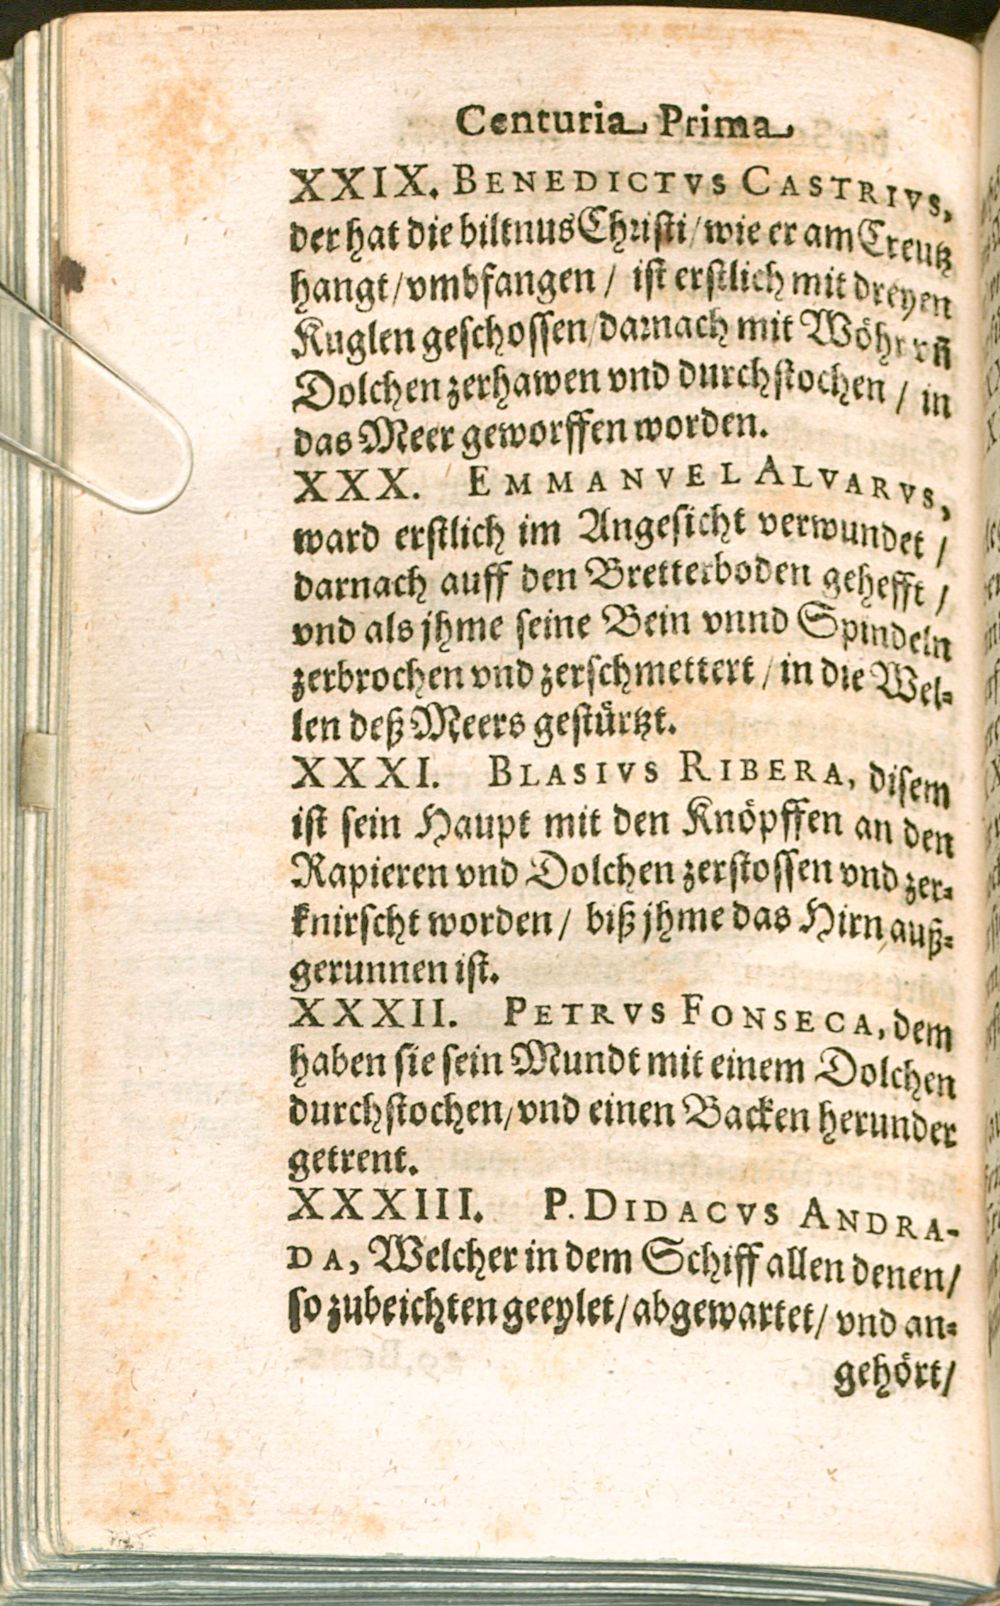 Centuria Prima
XXIX. BENEDICTVS CASTRIVS,
der hat die biltnus Christi/ wie er am Creutz
hangt/ vmbfangen/ ist erstlich mit dreyen
Kuglen geschossen/ darnach mit Wöhr vñ
Dolchen zerhawen vnd durchstochen/ in
das Meer geworffen worden.
XXX. EMMANVEL ALVARVS,
ward erstlich im Angesicht verwundet/
darnach auff den Bretterboden gehefft/
vnd als jhme seine Bein vnnd Spindeln
zerbrochen vnd zerschmettert/ in die Wel-
len deß Meers gestürtzt.
XXXI. BLASIVS RIBERA, disem
ist sein Haupt mit den Knöpffen an den
Rapieren vnd Dolchen zerstossen vnd zer-
knirscht worden/ biß jhme das Hirn auß-
gerunnen ist.
XXXII. PETRVS FONSECA, dem
haben sie sein Mundt mit einem Dolchen
durchstochen/ vnd einen Backen herunder
getrent.
XXXIII. P. DIDACVS ANDRA-
DA, Welcher in dem Schiff allen denen/
so zubeichten geeylet/ abgewartet/ vnd an-
gehört/